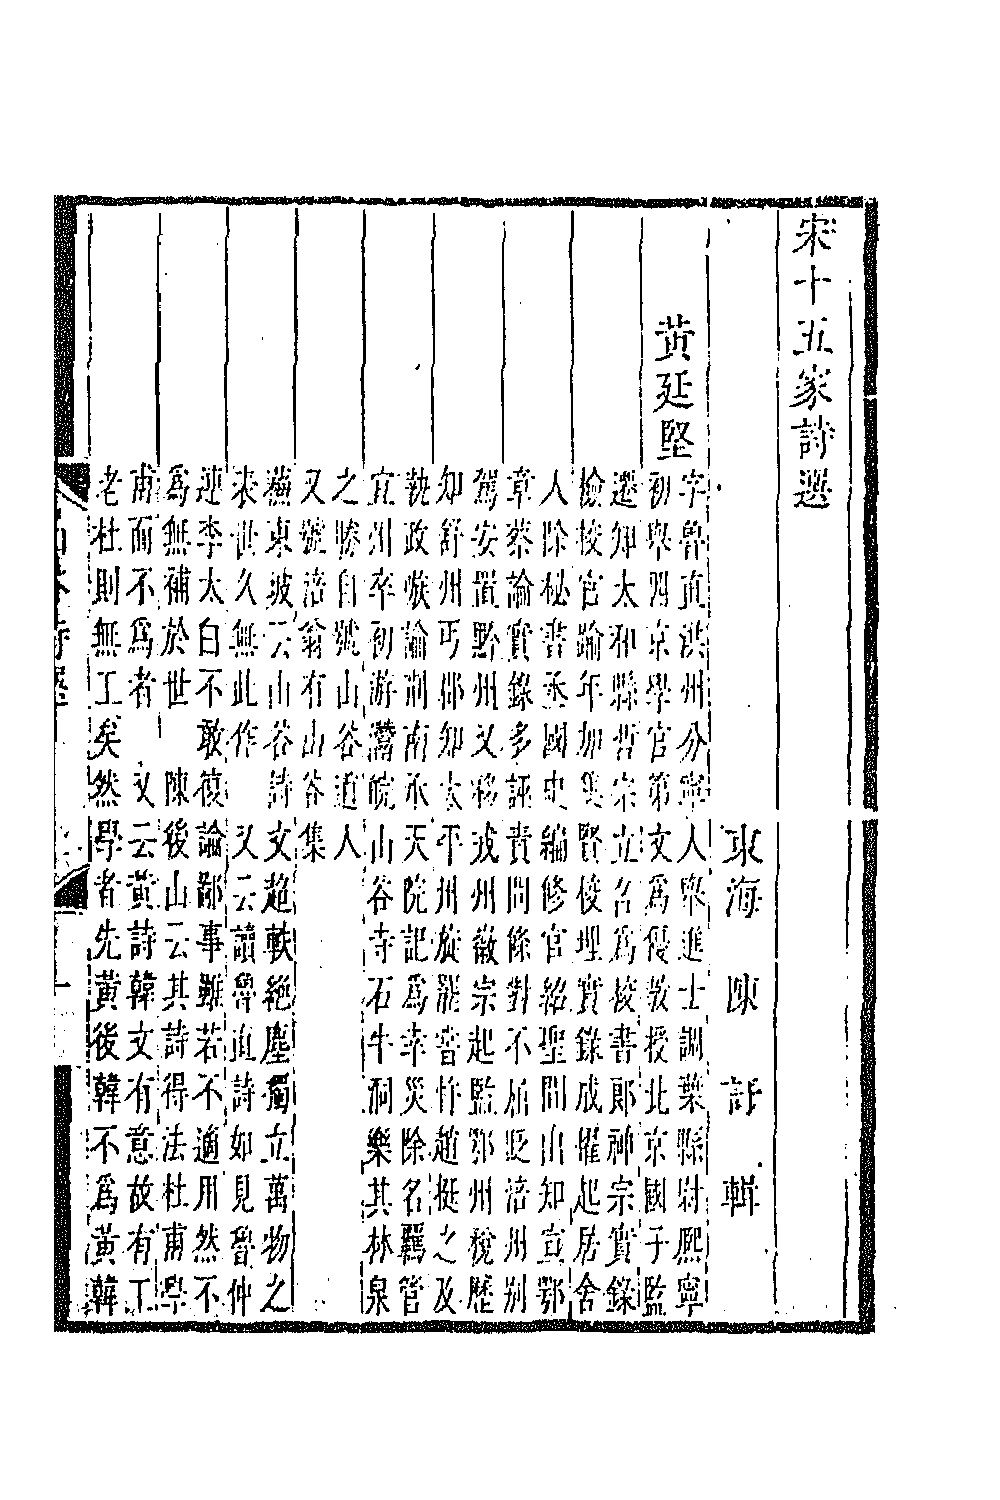 宋十五家詩選
東海 陳 訏 輯
黃廷堅
字魯直洪州分寧人舉進士調葉縣尉熙寧
初舉四京學官第文為優教授北京國子監
遷知太和縣哲宗立名為校書郎神宗實錄
檢校官踰年加集賢校理實錄成擢起居舍
人除秘書丞國史編修官紹聖間出知宣鄂
章蔡論實錄多誣責問條對不屈貶涪州別
駕安置黔州又移戎州徽宗起監鄂州稅歷
知舒州丐郡知太平州旋罷嘗忤趙挺之及
執政嫉諭荆南承天院記為幸災除名羈管
宜州卒初游灊皖山谷寺石牛洞樂其林泉
之勝自號山谷道人
又號涪翁有山谷集
蘇東坡云山谷詩文超軼絕塵獨立萬物之
來世久無此作 又云讀魯直詩如見魯仲
連李太白不敢復論鄙事雖若不適用然不
爲無補於世 陳後山云其詩得法杜甫學
甫而不爲者 又云黃詩韓文有意故有工
老杜則無工矣然學者先黃後韓不爲黃韓